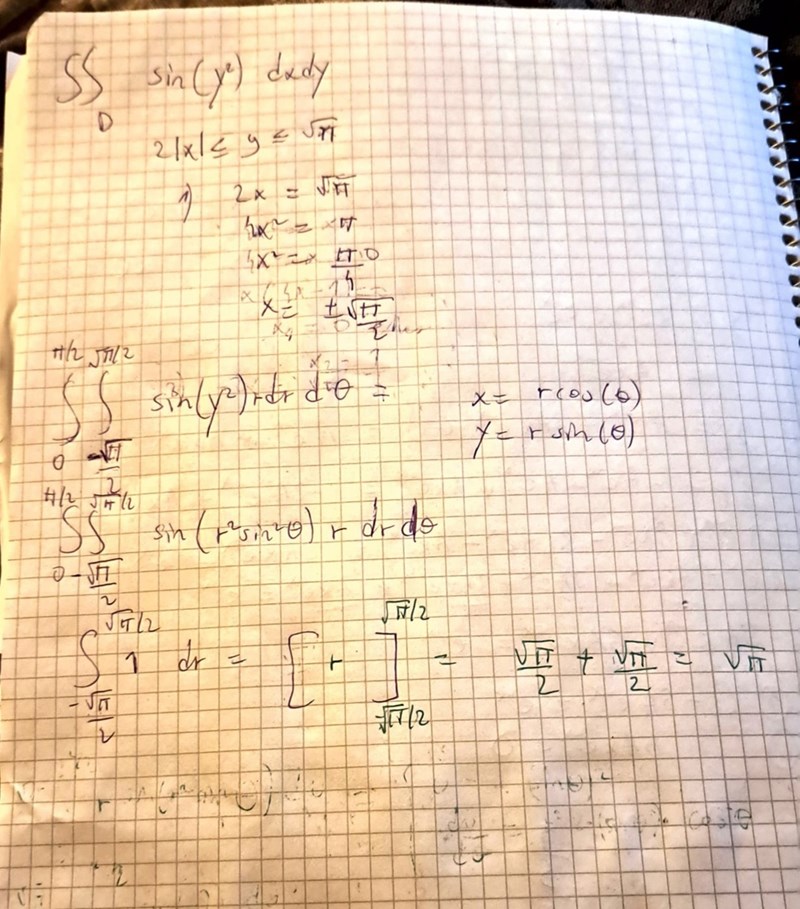 ∬_D sin(y²) dxdy
2|x| ≤ y ≤ √π
1) 2x = √π
4x² = π
4x² = π/4
x = ±√π/2
∫_0^{π/2} ∫_{-√π/2}^{√π/2} sin(y²) r dr dθ =
x = r cos(θ)
y = r sin(θ)
∫_0^{π/2} ∫_{-√π/2}^{√π/2} sin(r² sin²θ) r dr dθ
∫_{-√π/2}^{√π/2} 1 dr = [ r ]_{-√π/2}^{√π/2} = √π/2 + √π/2 = √π